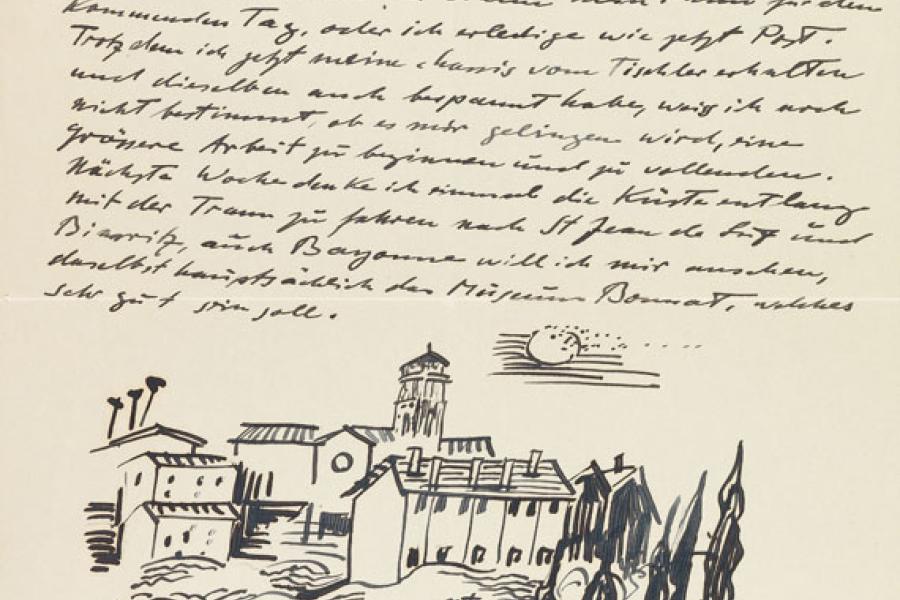 kommenden Tag, oder ich erledige wie jetzt Post.
Trotzdem ich jetzt meine chassis vom Tischler erhalten
und dieselben auch bespannt habe, weiß ich noch
nicht bestimmt, ob es mir gelingen wird, eine
grössere Arbeit zu beginnen und zu vollenden.
Nächste Woche denke ich einmal die Küste entlang
mit der Tram zu fahren nach St Jean de Luz und
Biarritz, auch Bayonne will ich mir ansehen,
daselbst hauptsächlich das Museum Bonnat, welches
sehr gut sein soll.